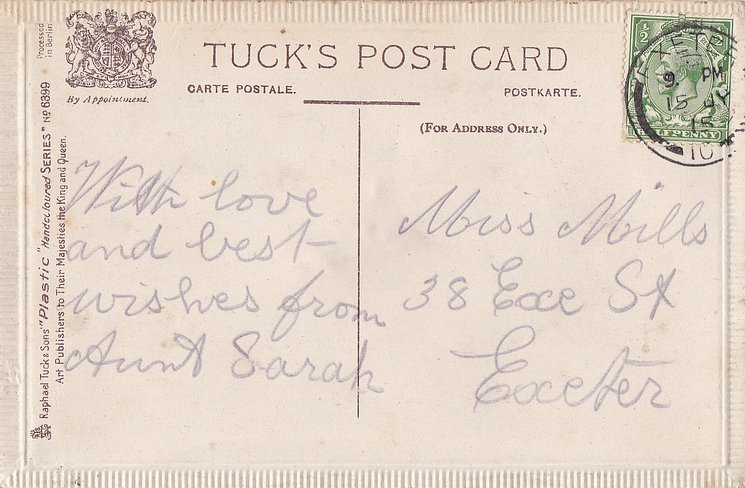 TUCK'S POST CARD
CARTE POSTALE.
POSTKARTE.
(FOR ADDRESS ONLY.)
By Appointment.
Processed
in Berlin
Raphael Tuck & Sons' "Plastic" "Handcoloured SERIES" No 6399
Art Publishers to Their Majesties the King and Queen.
With love
and best
wishes from
Aunt Sarah
Miss Mills
38 Exe St
Exeter
EXETER
9 PM
15 JY
15
10
½